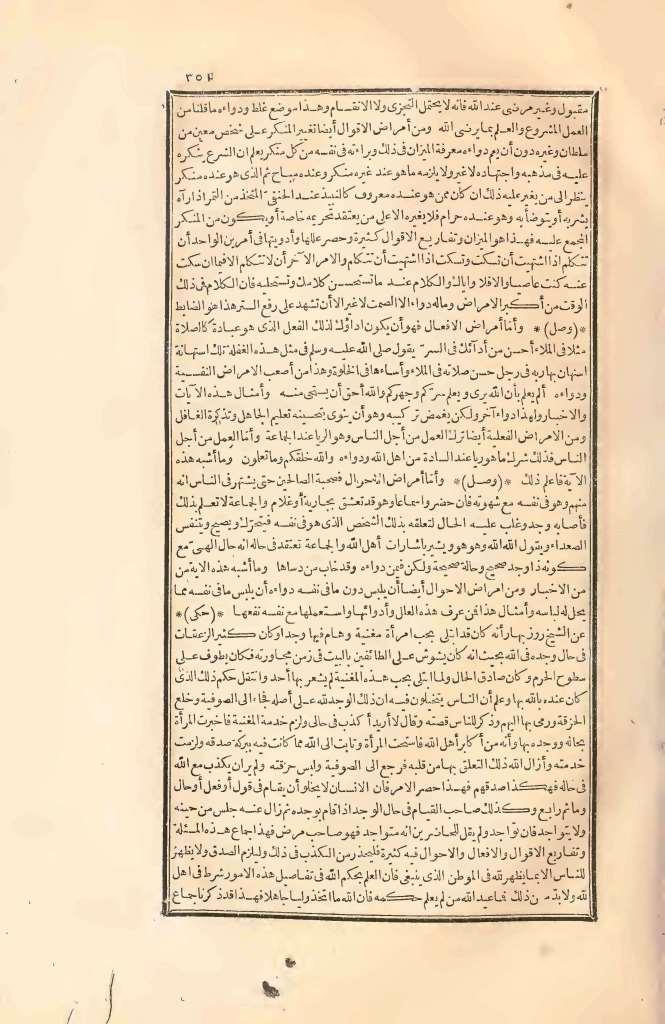 ٣٥٤
مقبول وغير مرضى عند الله فانه لا يحتمل التجزى ولا الانقسام وهذا موضع غلط ودواءه ما قلنا من
العمل المشروع والعلم بما يرضى الله ومن أمراض الاقوال أيضا تغيير المنكر على شخص معين من
سلطان وغيره دون أن يعم دواءه معرفة الميزان فى ذلك وبراءته فى نفسه من كل منكر يعلم ان الشرع ينكره
عليه فى مذهبه واجتهاده لا غير ولا يلزمه ما هو عند غيره منكر وعنده مباح ثم الذى هو عنده منكر
ينظر الى من يغير عليه ذلك ان كان ممن هو عنده معروف كالنبيذ عند الحنفى المتخذ من التمر اذا رآه
يشربه أو يتوضأ به وهو عنده حرام فلا يغيره الا على من يعتقد تحريمه خاصة أو يكون من المنكر
المجمع عليه فهذا هو الميزان وتفاريع الاقوال كثيرة وحصر عللها وأدويتها فى أمرين الواحد أن
تتكلم اذا اشتهيت أن تسكت وتسكت اذا اشتهيت أن تتكلم والامر الآخر أن لا تتكلم الا فيما ان سكت
عنه كنت عاصيا والا فلا واياك والكلام عند ما تستحسن كلامك وتستحليه فان الكلام فى ذلك
الوقت من أكبر الامراض وما له دواء الا الصمت لا غير الا أن تشهد على رفع الستر هذا هو الضابط
*(وصل)* وأما أمراض الافعال فهو أن يكون اداؤك لذلك الفعل الذى هو عبادة كالصلاة
مثلا فى الملاء أحسن من أدائك فى السر يقول صلى الله عليه وسلم فى مثل هذه الغفلة تلك استهانة
استهان بها ربه فى رجل حسن صلاته فى الملاء وأساءها فى الخلوة وهذا من أصعب الامراض النفسية
ودواءه ألم يعلم بأن الله يرى ويعلم سركم وجهركم والله أحق أن يستحى منه وأمثال هذه الآيات
والاخبار ولهذا دواء آخر ولكن يغمض تركيبه وهو أن ينوى بتحسينه تعليم الجاهل وتذكرة الغافل
ومن الامراض الفعلية أيضا ترك العمل من أجل الناس وهو الريا عند الجماعة وأما العمل من أجل
الناس فذلك شرك ما هو رياء عند السادة من اهل الله ودواءه والله خلقكم وما تعلمون وما أشبه هذه
الآية فاعلم ذلك *(وصل)* وأما أمراض الاحوال فصحبة الصالحين حتى يشتهر فى الناس انه
منهم وهو فى نفسه مع شهوته فان حضر واسماعا وهو قد تعشق بجارية أو غلام والجماعة لا تعلم بذلك
فأصابه وجد وغلب عليه الحال لتعلقه بذلك الشخص الذى هو فى نفسه فيتحرك ويصيح ويتنفس
الصعداء ويقول الله الله وهو هو ويشير باشارات أهل الله والجماعة تعتقد فى حاله انه حال الهى مع
كونه ذا وجد صحيح وحالة صحيحة ولكن فيمن دواءه وقد خاب من دساها وما أشبه هذه الآية من
من الاخبار ومن امراض الاحوال أيضا أن يلبس دون ما فى نفسه دواءه أن يلبس ما فى نفسه مما
يحل له لباسه وأمثال هذا فمن عرف هذه العلل وأدوائها واستعملها مع نفسه نفعها *(حكى)*
عن الشيخ روزبهار أنه كان قد ابتلى بحب امرأة مغنية وهام فيها وجدا وكان كثير الزعقات
فى حال وجده فى الله بحيث انه كان يشوش على الطائفين بالبيت فى زمن مجاورته فكان يطوف على
سطوح الحرم وكان صادق الحال ولما ابتلى بحب هذه المغنية لم يشعر بها أحد وانتقل حكم ذلك الذى
كان عنده بالله بها وعلم أن الناس يتخيلون فيه ان ذلك الوجد لله على أصله فجاء الى الصوفية وخلع
الخرقة ورمى بها اليهم وذكر للناس قصته وقال لا أريد أكذب فى حالى ولزم خدمة المغنية فاخبرت المرأة
بحاله ووجده بها وأنه من أكابر أهل الله فاستحت المرأة وتابت الى الله مما كانت فيه ببركة صدقه ولزمت
خدمته وأزال الله ذلك التعلق بها من قلبه فرجع الى الصوفية ولبس خرقته ولم ير ان يكذب مع الله
فى حاله فهكذا صدقهم فهذا حصر الامر فان الانسان لا يخلو أن يقام فى قول أو فعل أو حال
وما ثم رابع وكذلك صاحب القيام فى حال الوجد اذا قام بوجده ثم زال عنه جلس من حينه
ولا يتواجد فان تواجد ولم يقل للحاضرين انه متواجد فهو صاحب مرض فهذا جماع هذه المسئلة
وتفاريع الاقوال والافعال والاحوال فيه كثيرة فليحذر من الكذب فى ذلك وليلزم الصدق ولا يظهر
للناس الا بما يظهر لله فى الموطن الذى ينبغى فان العلم بحكم الله فى تفاصيل هذه الامور شرط فى اهل
لله ولا بد من ذلك فما عبد الله من لم يعلم حكمه فان الله ما اتخذ وليا جاهلا فهذا قد ذكرنا جماع